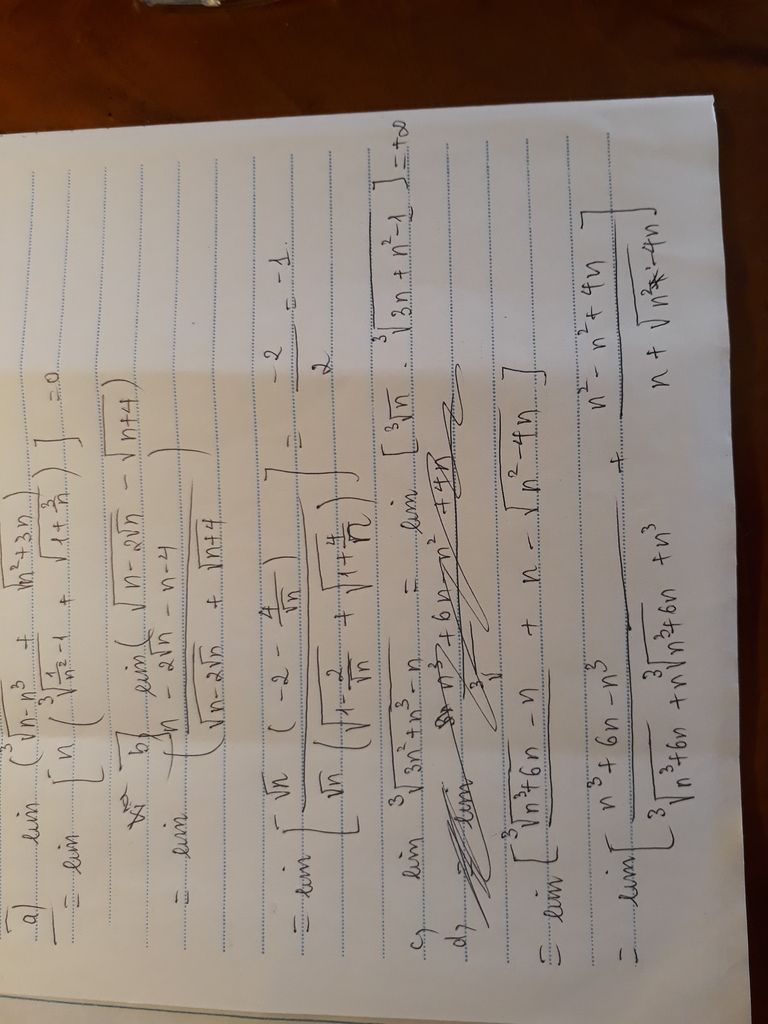 a) lim (∛(n-n³) + √(n²+3n))
= lim [n (∛(1/n² -1) + √(1+3/n))] =0
b) lim (√(n-2√n) - √(n+4))
= lim (n-2√n-n-4 / √(n-2√n) + √(n+4))
= lim [√n (-2 - 4/√n) / √n (√(1-2/√n) + √(1+4/n))] = -2/2 = -1.
c, lim ∛(3n²+n³) - n = lim [∛n . ∛(3n+n²-1)] = +∞
d,
= lim [∛(n³+6n) - n + n - √(n²-4n)]
= lim [n³+6n-n³ / ∛(n³+6n) + n∛(n³+6n) + n³ + n²-n²+4n / n+√(n²-4n)]